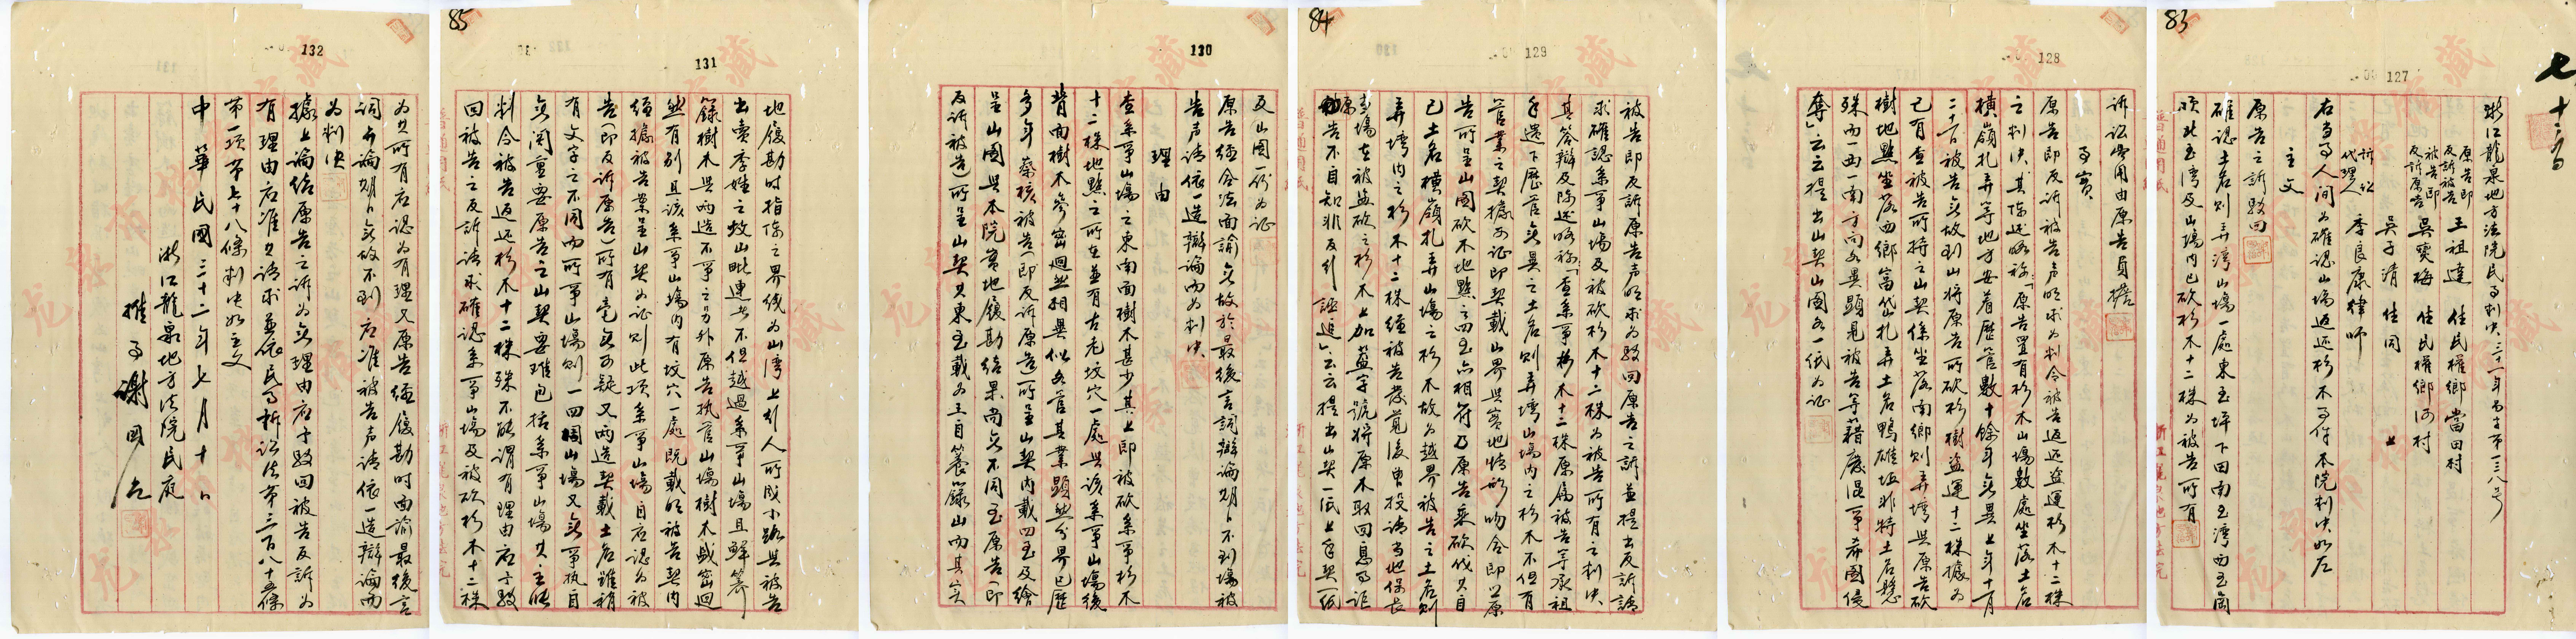 83
127
七十三
浙江龍泉地方法院民事判決三十一年易字第一三八号
原告即反訴被告 王祖達 住民權鄉當田村
被告即反訴原告 吳寶梅 住民權鄉河村
吳子清 住同 上
訴訟代理人 季良康律師
右當事人間为確認山場返还杉木事件本院判決如左
主文
原告之訴駁回
確認土名则弄湾山場一處東至坪下田南至湾西至崗
顶北至湾及山場內已砍杉木十二株为被告所有
128
訴訟費用由原告負擔
事實
原告即反訴被告声明求为判令被告返还盗運杉木十二株
之判決其陳述略称「原告置有杉木山場數處坐落土名
橫嶺扎弄等地方安着歷管數十餘年无異上年十一月
二十日被告无故到山將原告所砍杉樹盗運十二株據为
已有查被告所持之山契係坐落南鄉则弄壋與原告砍
樹地點坐落西鄉富岱扎弄土名鴨碓垃非特土名懸
殊而一西一南方向各異顯見被告等藉废混爭希圖侵
奪」云云提出山契山圖各一纸为证
84
129
被告即反訴原告声明求为駁回原告之訴並提出反訴請
求確認系爭山場及被砍杉木十二株为被告所有之判決
其答辯及陳述略称「查系爭杉木十二株原属被告等承祖
手遗下歷管无異之土名则弄壋山場內之杉木不但有
管業之契據可证即契載山界與实地情形吻合即以原
告所呈山圖砍木地點之四至亦相符乃原告乘砍伐其自
已土名橫嶺扎弄山場之杉木故为越界被告之土名则
弄壋內之杉木十二株經被告等覓後曾投请当地保長
到場在被盗砍之杉木上加蓋字號將原木取回息事詎
原告不自知非反引誣追」云云提出山契一纸上手契一纸
130
及山圖一份为证
原告經合法面諭无故於最後言詞辯論期日不到場被
告声请依一造辯論而为判決
理由
查系爭山場之東南面樹木甚少其上即被砍系爭杉木
十二株地點之所在並有古老坟穴一處與該系爭山場後
背面樹木參密迥然相異似各管其業顯然分界已歷
多年察核被告(即反訴原告)所呈山契內載四至及繪
呈山圖與本院实地履勘结果尚无不同至原告(即
反訴被告)所呈山契其東至載为王自養籙山而其实
85
131
地履勘时指陈之界线为山湾上引人所成小路與被告
出賣季姓之坟山毗連此不但越過系爭山場且鮮籌
籙樹木與兩造不爭之另外原告执管山場樹木盛密迥
然有别且該系爭山場內有坟穴一處既載明被告契內
經據被告業呈山契为证则此项系爭山場自应認为被
告(即反訴原告)所有毫无可疑又兩造契載土名雖稍
有文字之不同而所爭山場则一四週山場又无爭执自
无闗重要原告之山契要难包括系爭山場其主張
判令被告返还杉木十二株殊不能謂有理由应予駁
回被告之反訴请求確認系爭山場及被砍杉木十二株
132
为其所有应認为有理又原告經履勘时面諭最後言
詞辯論期日无故不到应准被告声请依一造辯論而
为判決
據上論结原告之訴为无理由应予駁回被告反訴为
有理由应准其请求並依民事訴訟法第三百八十五條
第一項第七十八條判決如主文
中華民國三十二年七月十日
浙江龍泉地方法院民庭
推事謝國㐲